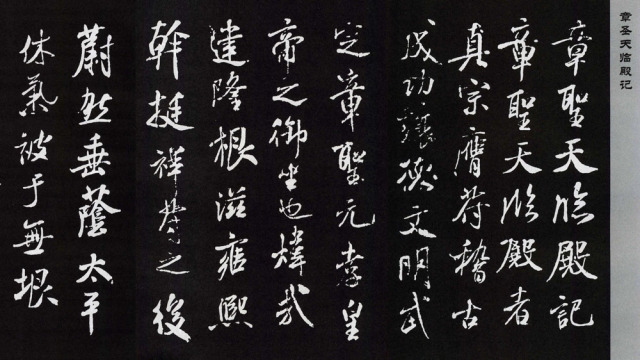 章圣天临殿记
章聖天臨殿記
章聖天臨殿者
真宗膺符稽古
成功讓德文明武
定章聖元孝皇
帝之御坐也煒哉
建隆根滋雍熙
幹挺祥符之後
蔚然垂蔭太平
休氣被于無垠